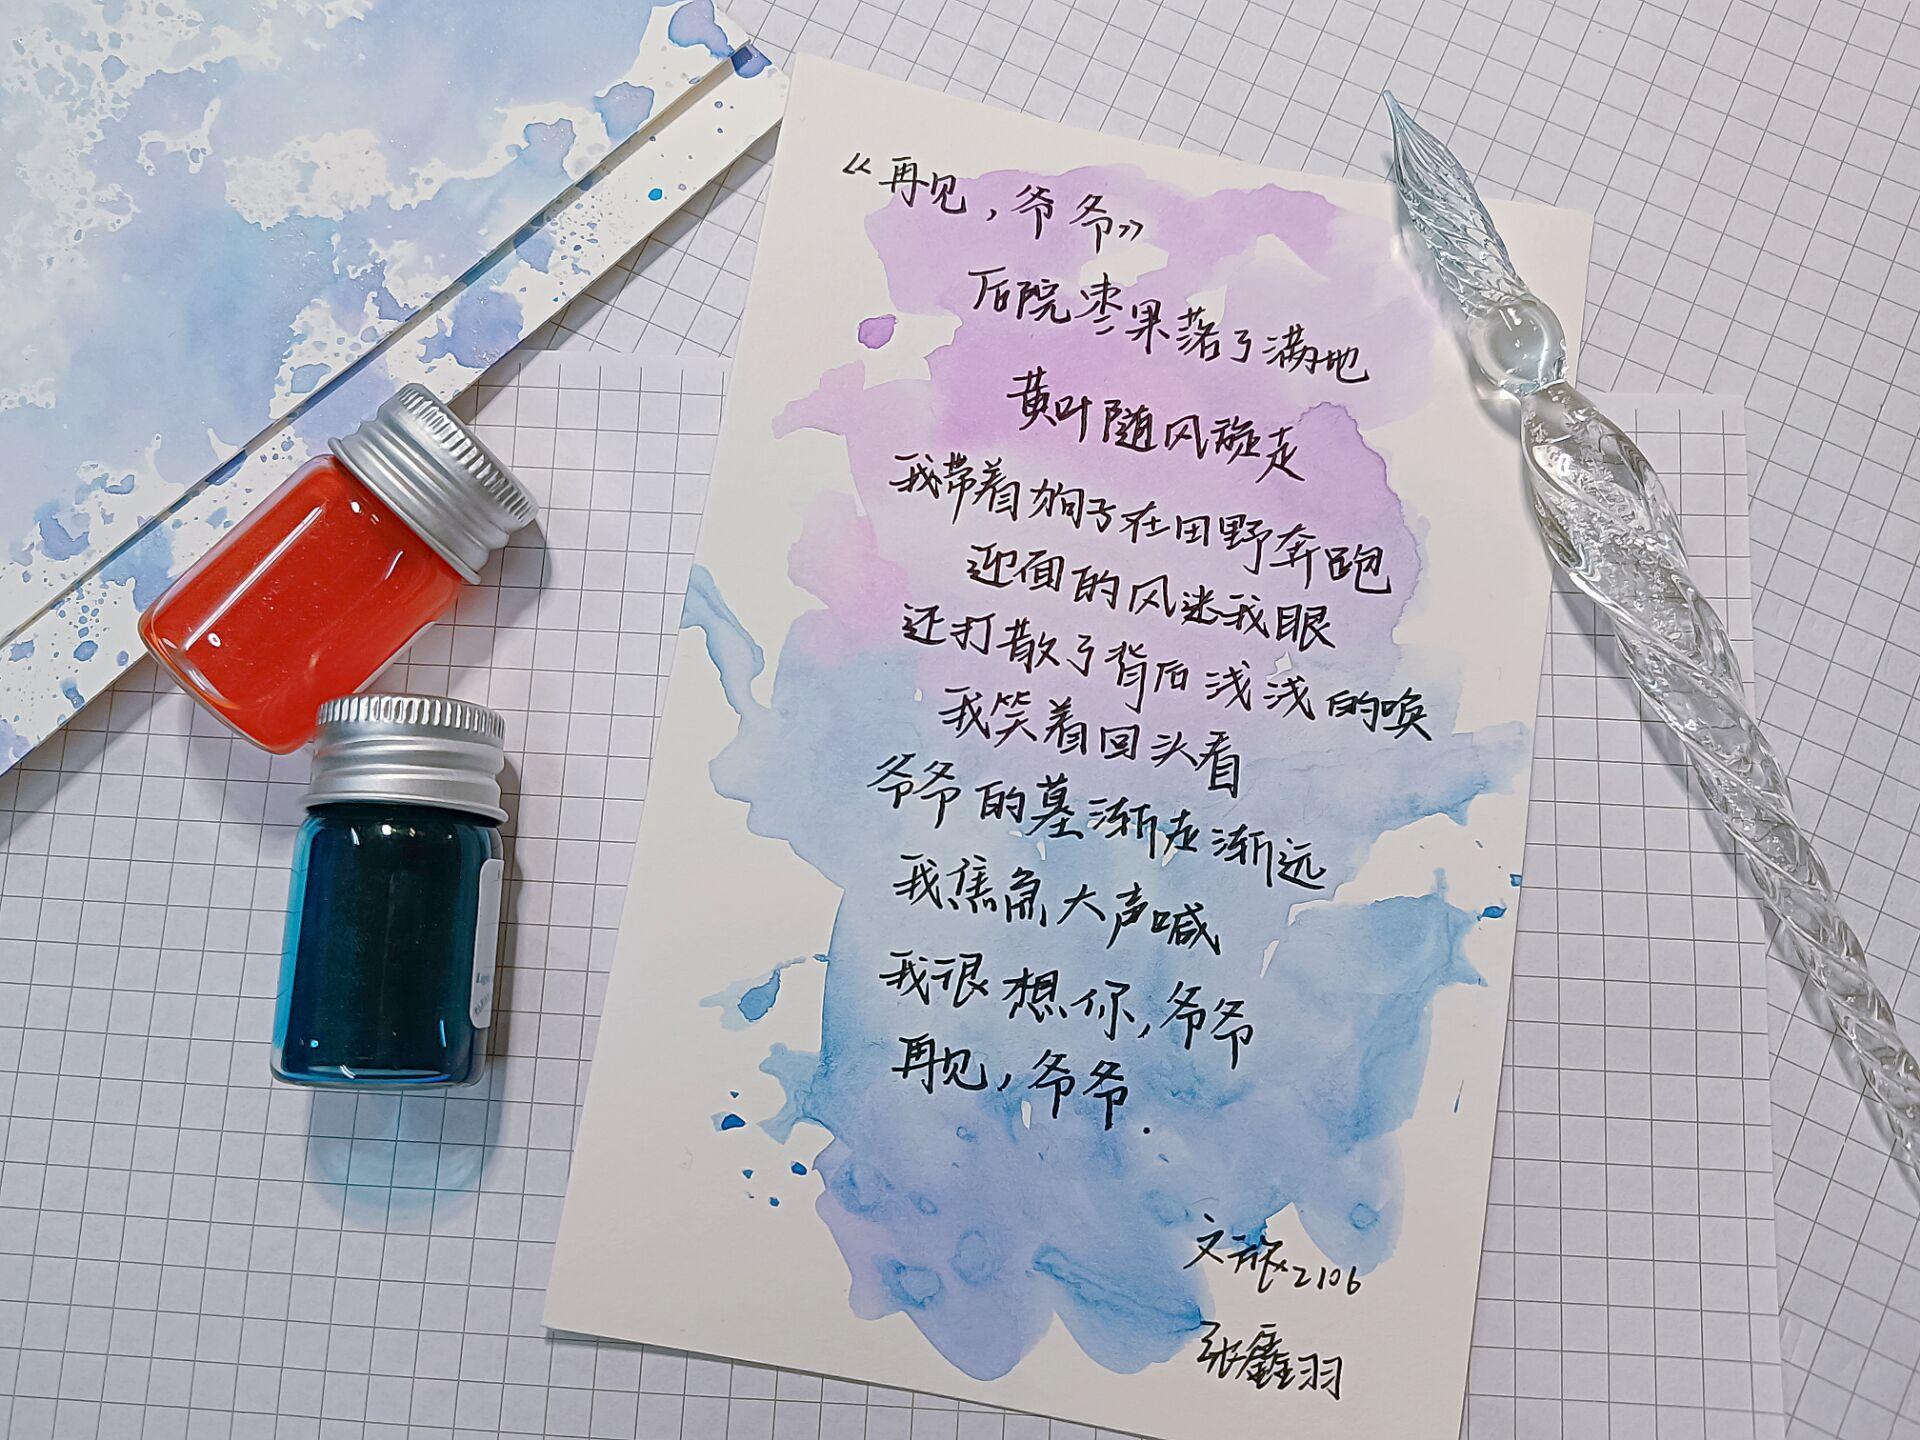 《再见，爷爷》
后院枣果落了满地
黄叶随风旋走
我带着狗子在田野奔跑
迎面的风迷我眼
还打散了背后浅浅的唤
我笑着回头看
爷爷的墓渐走渐远
我焦急大声喊
我很想你，爷爷
再见，爷爷.
文旅2106
张鑫羽